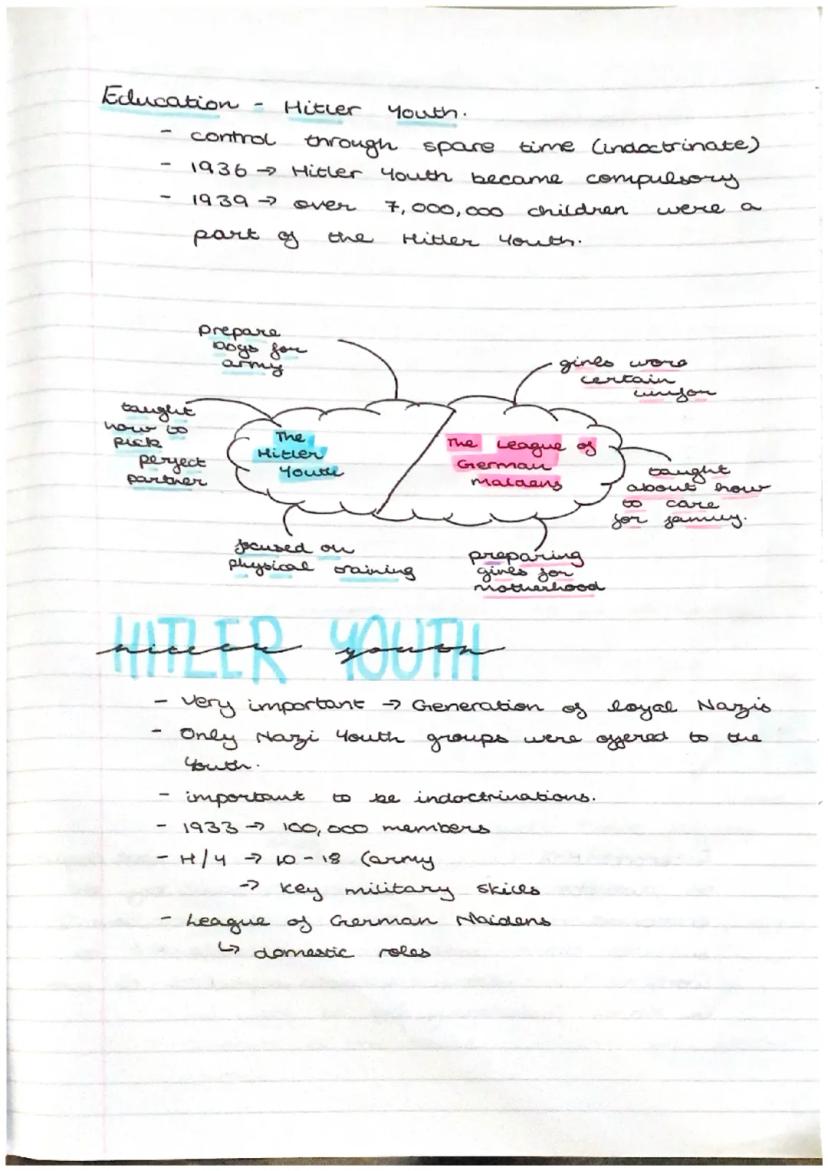 Education - Hitler Youth.
- control through spare time (indoctrinate)
- 1936 → Hitler Youth became compulsory
- 1939 → over 7,000,000 children were a
part of the Hitler Youth.
prepare
boys for
army
taught
how to
pick
perfect
partner
The
Hitler
Youth
focused on
physical training
girls wore
certain
The League of
German
Maidens
taught
about how
to care
for family.
preparing
girls for
motherhood
HITLER YOUTH
hitler youth
- Very important → Generation of loyal Nazis
- Only Nazi Youth groups were offered to the
Youth.
- important to be indoctrinations.
- 1933 → 100,000 members
- H/Y → 10-18 (army
→ key military skills
- League of German Maidens
↳ domestic roles